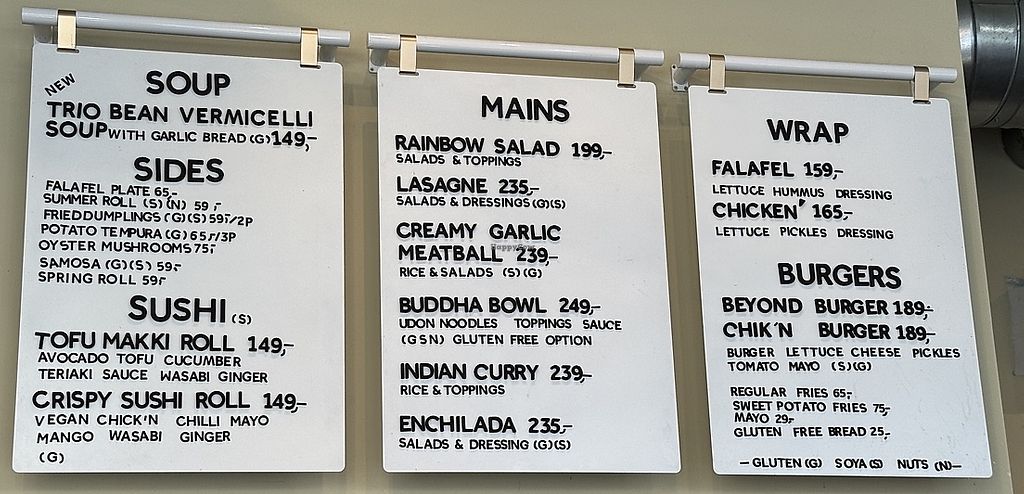 NEW
SOUP
TRIO BEAN VERMICELLI
SOUP WITH GARLIC BREAD (G) 149,-
SIDES
FALAFEL PLATE 65,-
SUMMER ROLL (S) (N) 59,-
FRIED DUMPLINGS (G)(S) 59,-/2P
POTATO TEMPURA (G) 65,-/3P
OYSTER MUSHROOMS 75,-
SAMOSA (G)(S) 59,-
SPRING ROLL 59,-
SUSHI (S)
TOFU MAKKI ROLL 149,-
AVOCADO TOFU CUCUMBER
TERIAKI SAUCE WASABI GINGER
CRISPY SUSHI ROLL 149,-
VEGAN CHICK'N CHILLI MAYO
MANGO WASABI GINGER
(G)
MAINS
RAINBOW SALAD 199,-
SALADS & TOPPINGS
LASAGNE 235,-
SALADS & DRESSINGS (G)(S)
CREAMY GARLIC
HappyCow
MEATBALL 239,-
RICE & SALADS (S) (G)
BUDDHA BOWL 249,-
UDON NOODLES TOPPINGS SAUCE
(G S N) GLUTEN FREE OPTION
INDIAN CURRY 239,-
RICE & TOPPINGS
ENCHILADA 235,-
SALADS & DRESSING (G)(S)
WRAP
FALAFEL 159,-
LETTUCE HUMMUS DRESSING
CHICKEN' 165,-
LETTUCE PICKLES DRESSING
BURGERS
BEYOND BURGER 189,-
CHIK'N BURGER 189,-
BURGER LETTUCE CHEESE PICKLES
TOMATO MAYO (S)(G)
REGULAR FRIES 65,-
SWEET POTATO FRIES 75,-
MAYO 29,-
GLUTEN FREE BREAD 25,-
-GLUTEN (G) SOYA (S) NUTS (N)-